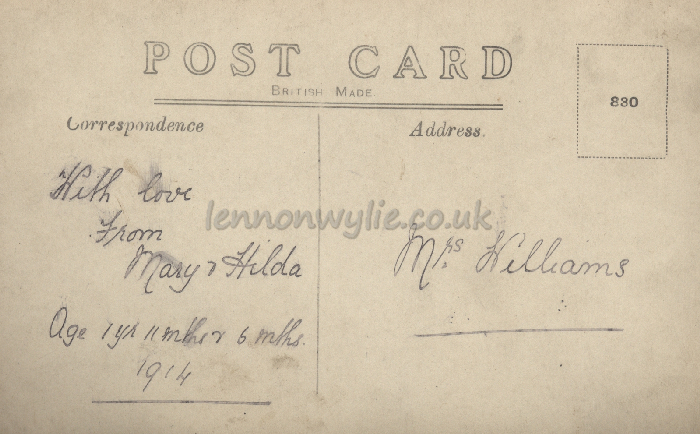 POST CARD
BRITISH MADE.
830
Correspondence
Address.
With love
From
Mary & Hilda
Age 1 yr 11 mths & 6 mths.
1914
Mrs Williams
lennonwylie.co.uk